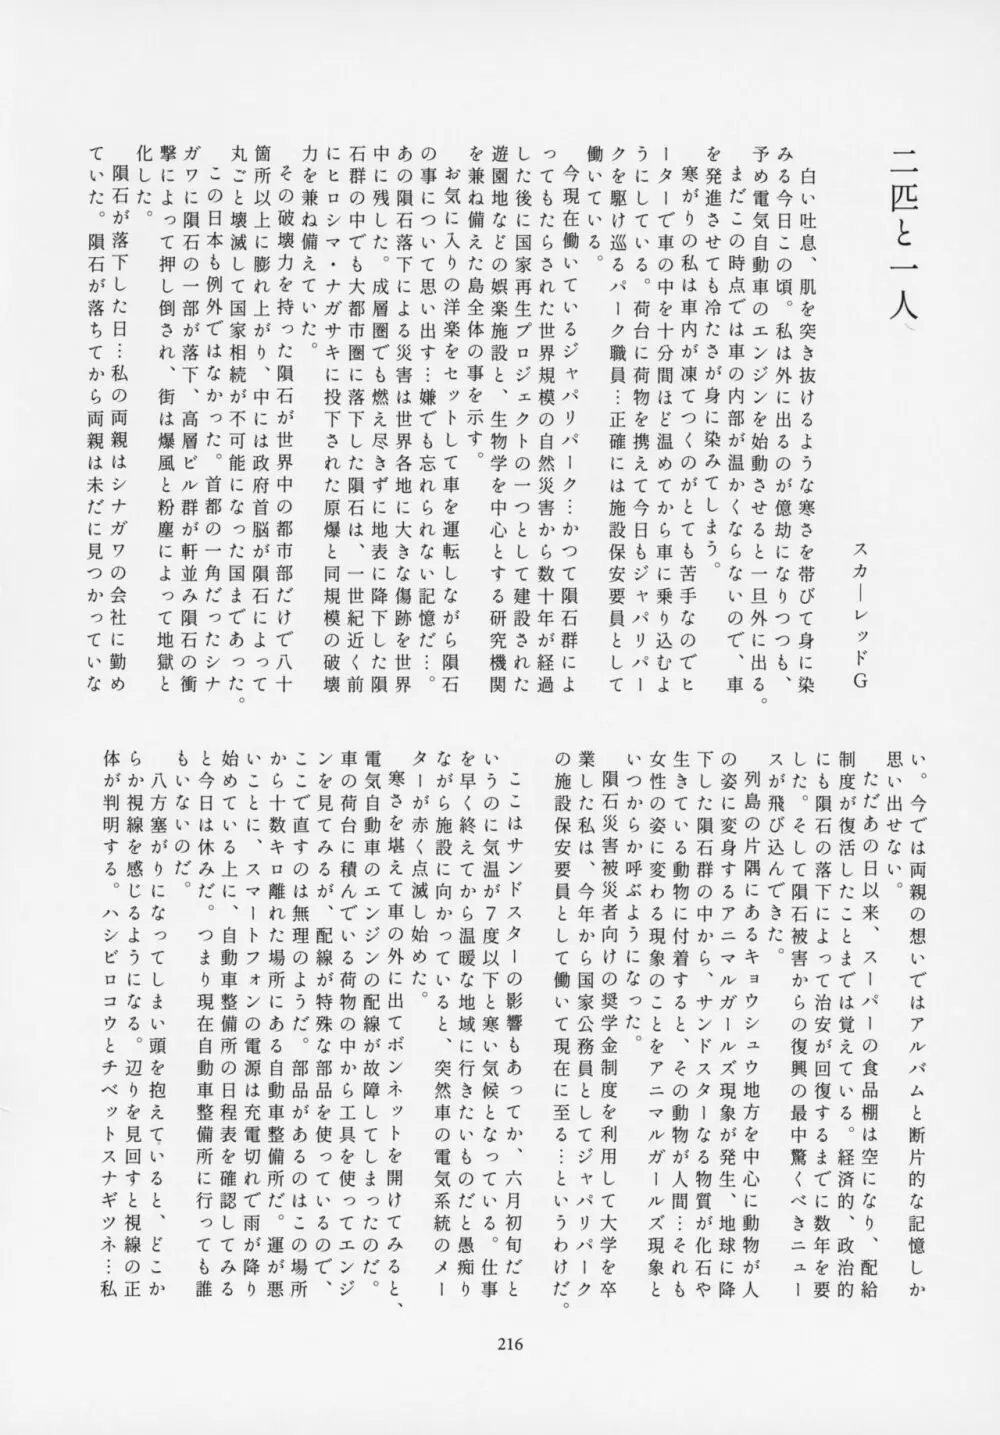 二匹と一人
スカーレッドG
　白い吐息、肌を突き抜けるような寒さを帯びて身に染
みる今日この頃。私は外に出るのが億劫になりつつも、
予め電気自動車のエンジンを始動させると一旦外に出る。
　まだこの時点では車の内部が温かくならないので、車
を発進させても冷たさが身に染みてしまう。
　寒がりの私は車内が凍てつくのがとても苦手なのでヒ
ーターで車の中を十分間ほど温めてから車に乗り込むよ
うにしている。荷台に荷物を携えて今日もジャパリパー
クを駆け巡るパーク職員…正確には施設保安要員として
働いている。
　今現在働いているジャパリパーク…かつて隕石群によ
ってもたらされた世界規模の自然災害から数十年が経過
した後に国家再生プロジェクトの一つとして建設された
遊園地などの娯楽施設と、生物学を中心とする研究機関
を兼ね備えた島全体の事を示す。
　お気に入りの洋楽をセットして車を運転しながら隕石
の事について思い出す…嫌でも忘れられない記憶だ…。
あの隕石落下による災害は世界各地に大きな傷跡を世界
中に残した。成層圏でも燃え尽きずに地表に降下した隕
石群の中でも大都市圏に落下した隕石は、一世紀近く前
にヒロシマ・ナガサキに投下された原爆と同規模の破壊
力を兼ね備えていた。
　その破壊力を持った隕石が世界中の都市部だけで八十
箇所以上に膨れ上がり、中には政府首脳が隕石によって
丸ごと壊滅して国家相続が不可能になった国まであった。
　この日本も例外ではなかった。首都の一角だったシナ
ガワに隕石の一部が落下、高層ビル群が軒並み隕石の衝
撃によって押し倒され、街は爆風と粉塵によって地獄と
化した。
　隕石が落下した日…私の両親はシナガワの会社に勤め
ていた。隕石が落ちてから両親は未だに見つかっていな
い。今では両親の想いではアルバムと断片的な記憶しか
思い出せない。
　ただあの日以来、スーパーの食品棚は空になり、配給
制度が復活したことまでは覚えている。経済的、政治的
にも隕石の落下によって治安が回復するまでに数年を要
した。そして隕石被害からの復興の最中驚くべきニュー
スが飛び込んできた。
　列島の片隅にあるキョウシュウ地方を中心に動物が人
の姿に変身するアニマルガールズ現象が発生、地球に降
下した隕石群の中から、サンドスターなる物質が化石や
生きている動物に付着すると、その動物が人間…それも
女性の姿に変わる現象のことをアニマルガールズ現象と
いつからか呼ぶようになった。
　隕石災害被災者向けの奨学金制度を利用して大学を卒
業した私は、今年から国家公務員としてジャパリパーク
の施設保安要員として働いて現在に至る…というわけだ。
　ここはサンドスターの影響もあってか、六月初旬だと
いうのに気温が7度以下と寒い気候となっている。仕事
を早く終えてから温暖な地域に行きたいものだと愚痴り
ながら施設に向かっていると、突然車の電気系統のメー
ターが赤く点滅し始めた。
　寒さを堪えて車の外に出てボンネットを開けてみると、
電気自動車のエンジンの配線が故障してしまったのだ。
車の荷台に積んでいる荷物の中から工具を使ってエンジ
ンを見てみるが、配線が特殊な部品を使っているので、
ここで直すのは無理のようだ。部品があるのはこの場所
から十数キロ離れた場所にある自動車整備所だ。運が悪
いことに、スマートフォンの電源は充電切れで雨が降り
始めている上に、自動車整備所の日程表を確認してみる
と今日は休みだ。つまり現在自動車整備所に行っても誰
もいないのだ。
　八方塞がりになってしまい頭を抱えていると、どこか
らか視線を感じるようになる。辺りを見回すと視線の正
体が判明する。ハシビロコウとチベットスナギツネ…私
216